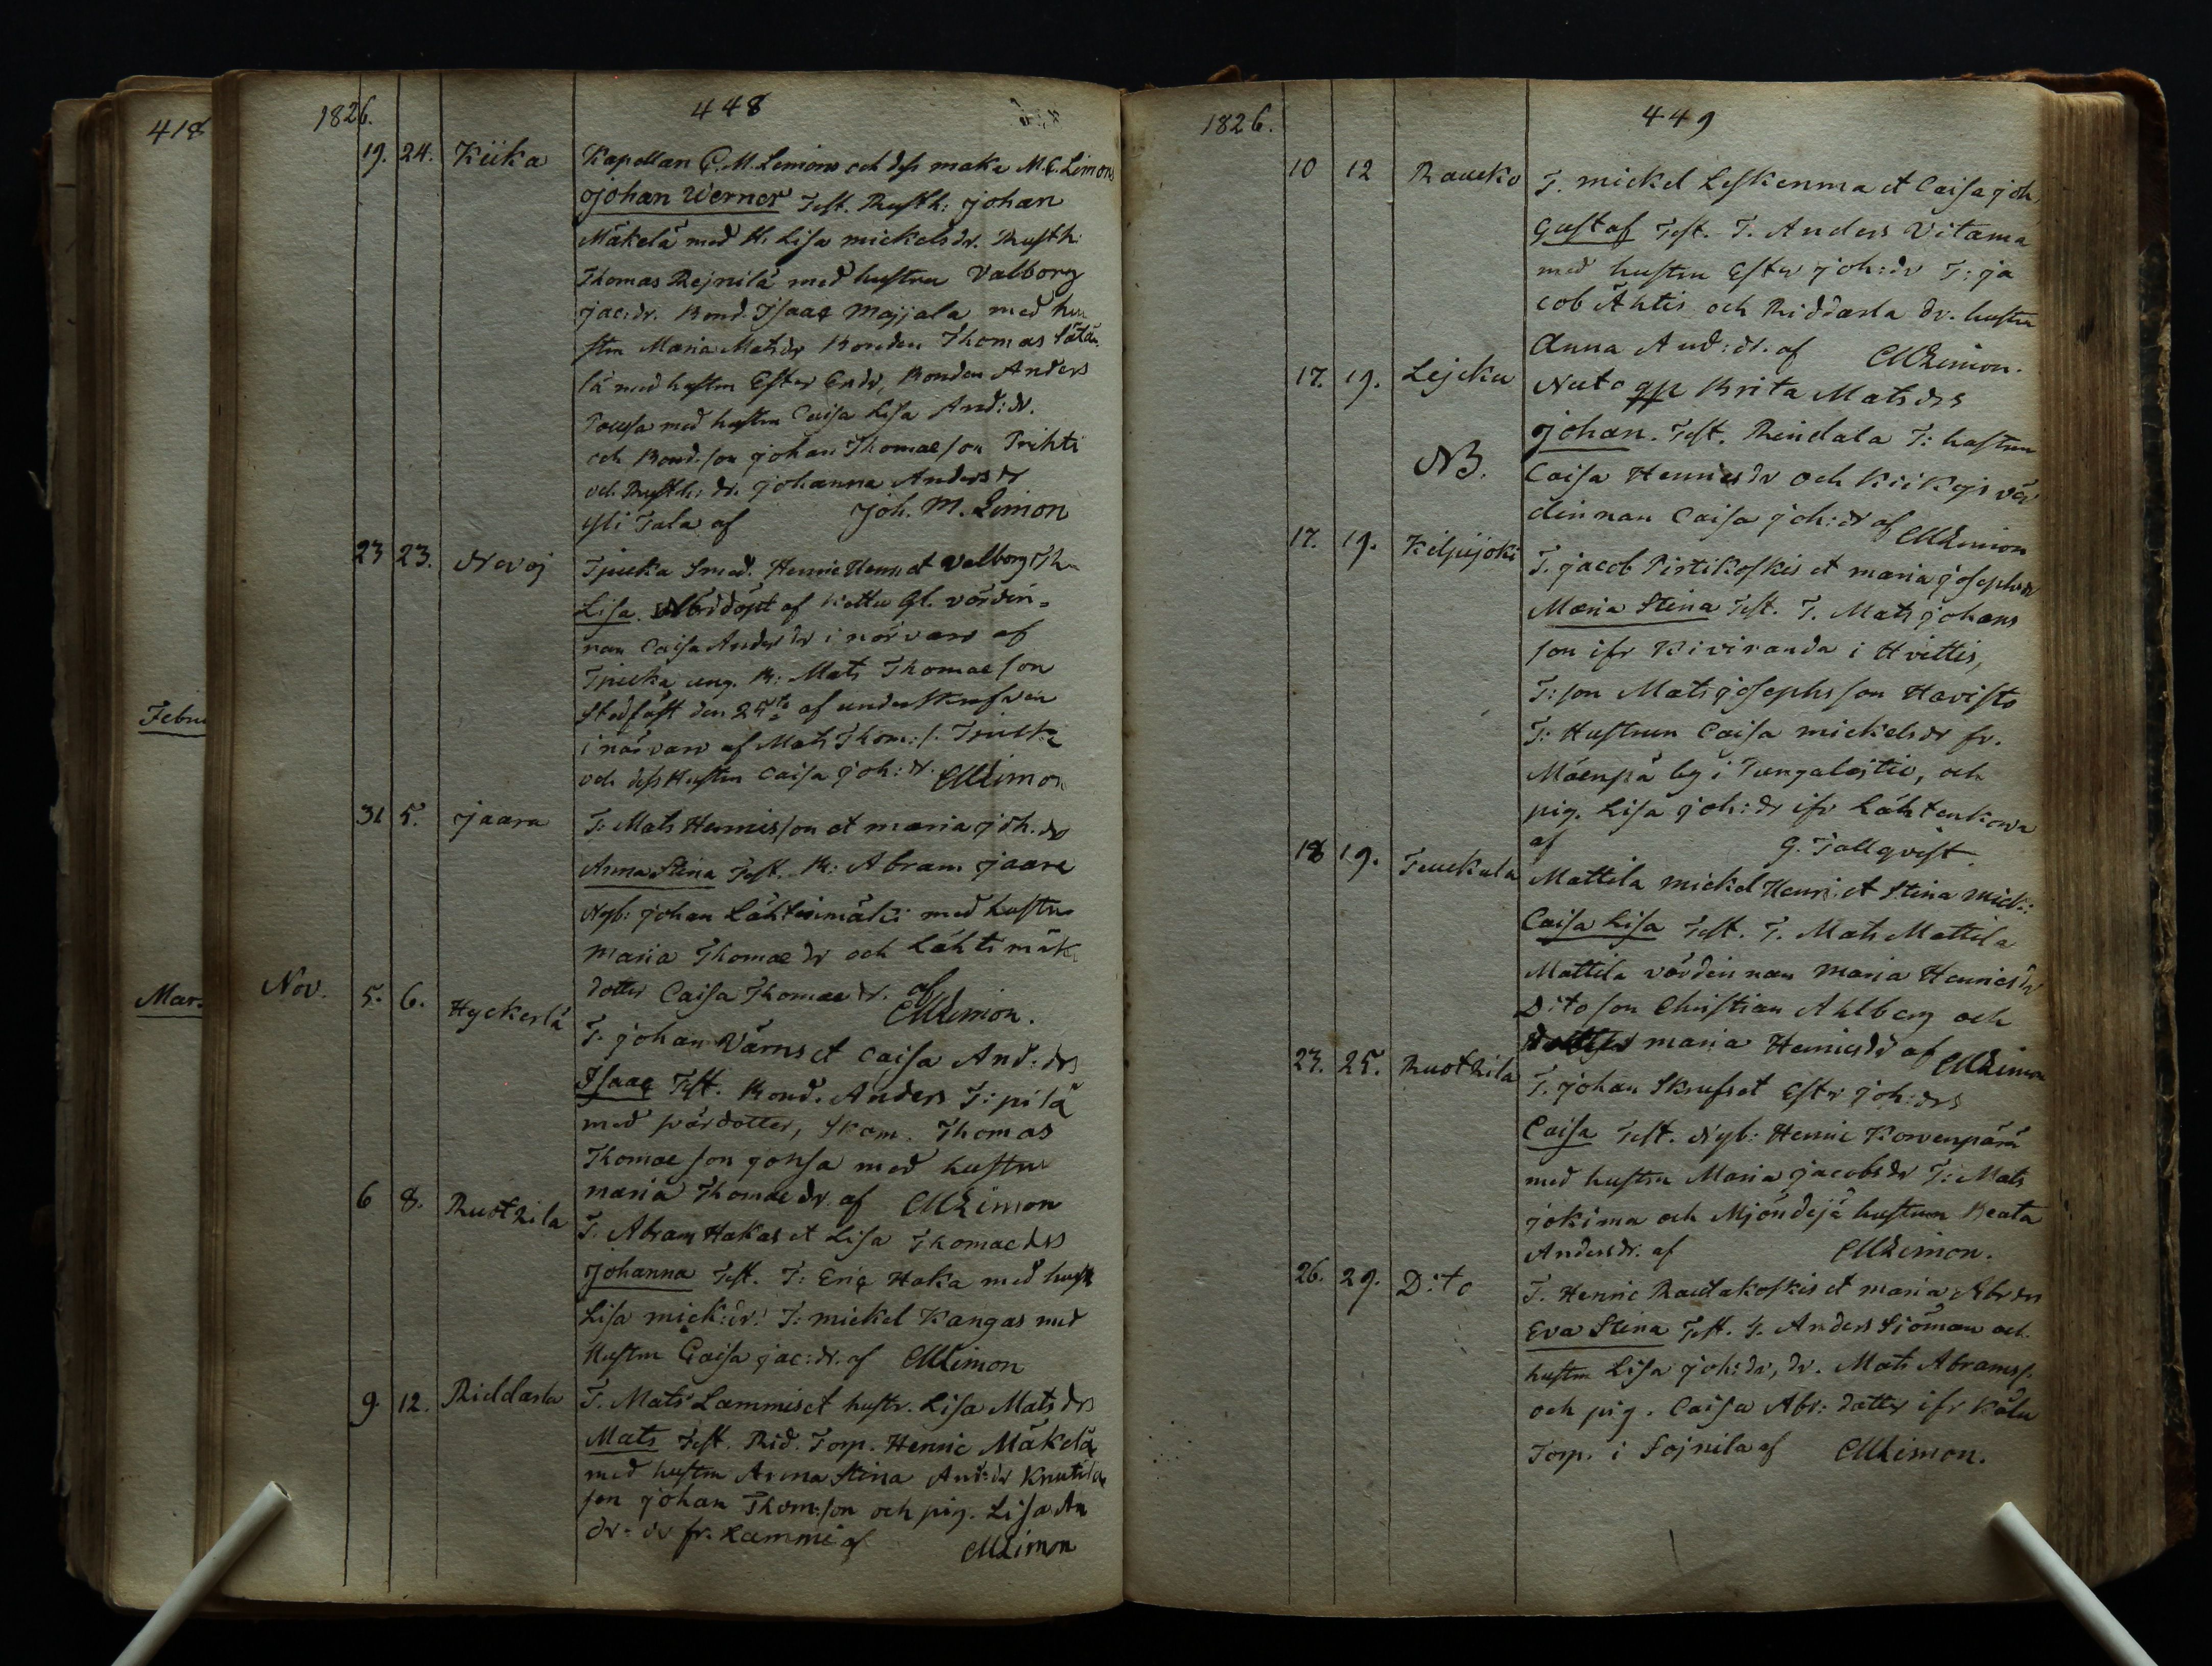 418
Febru
Mars
1826.
448
19. 24. Kiika
Kapellan C. M. Limons och dess maka M. C. Limons
Johan Werner Test. Rusth: Johan
Mäkelä med H. Lisa mickelsdr. Rusth:
Thomas Rejnilä med hustru Valborg
Jac:dr. Bond. Isaac Majjala med hu
stru Maria Matsdr Bonden Thomas
lä med hustru Ester Ersdr, Bonden Anders
med hustru Caisa Lisa And:dr.
och Bond. son Johan Thomaeson Prihti
och Rusth: dr. Johanna Andersdr
Yli Tala af Joh. M. Limon
23 23. Novoj
Smed. Henric Henr: et Valborg Th.
Lisa. Nöddöpt af Kottu Gl. värdin-
nan Caisa Andersdr i närvaro af
ung. B: Mats Thomaeson
Stadfäst den 25te af underskrefven
i närvaro af Mats Thom: s.
och dess Hustru Caisa Joh: dr. CMLimon
31 5. Jaara
T: Mats Hennisson et maria Joh. dr
Anna Stina Test. B: Abram Jaara
Nyb: Johan Lähtesmäki med hustru
Maria Thomaedr och Lähtimäki
dotter Caisa Thomaedr. af
CMLimon.
Nov. 5. 6. Hyckerlä
T. Johan Värns et Caisa And: drs
Isaac Test. Bond. Anders T: pilä
med svärdotter, Skom. Thomas
Thomaeson Jonsa med hustru
maria Thomaedr. af CMLimon
6 8. Ruothila
T. Abram Hakas et Lisa Thomaedrs
Johanna Test. T: Eric Haka med hust
Lisa mick:dr. T: mickel Kangas med
Hustru Caisa Jac:dr. af CMLimon
9. 12. Riddarla
T. Mats Lammis et hustr. Lisa Matsdrs
Mats Test. Rid. Torp. Henric Mäkelä
med hustru Anna Stina And:dr Knutila
son Johan Thom:son och pig. Lisa An
dr- dr fr. Lammi af CMLimon
1826.
449
10 12 Raucko
T. mickel Leskenma et Caisa Joh
Gustaf Test. T. Anders Vitama
med hustru Ester Joh:dr T: Ja
cob Ähtis och Riddarla dr. hustru
Anna And:dr. af CMLimon.
17. 19. Lejcku
NB.
Brita Matsdrs
Johan. Test. Rendala T: hustrun
Caisa Hennicsdr och Kiikojs vär
dinnan Caisa Joh:dr af CMLimon
17. 19. Kilpijoki
T. Jacob Pirtikoskis et maria Josephsdr
Maria Stina Test. T. Mats Johans
son ifr Kiviranda i Hvittis,
T: son Mats Josephsson Havisto
T: Hustrun Caisa mickelsdr fr.
Mäenpä by i Pungalaitio, och
pig. Lisa Joh: dr ifr Lähtenkorva
af G. Tallqvist.
18 19. Teuckula
Mattila mickel Henri: et Stina Mick:
Caisa Lisa Test. T. Mats Mattila
Mattila värdinnan Maria Hennicsdr
Dito son Christian Ahlberg och
maria Hennicsdr af CMLimon
23. 25. Ruothila
T. Johan Skrufs et Ester Joh: drs
Caisa Test. Nyb: Henric Korvenpää
med hustru Maria Jacobsdr T: Mats
Jokima och Mjöndejä hustrun Beata
Andersdr. af CMLimon.
26. 29. D:to
T. Henric Raudakoskis et maria Abr drs
Eva Stina Test. S. Anders Siöman och
hustru Lisa Joh:dr, dr. Mats Abramss.
och pig. Caisa Abr: dotter ifr Kälu
Torp. i Sojnila af CMLimon.